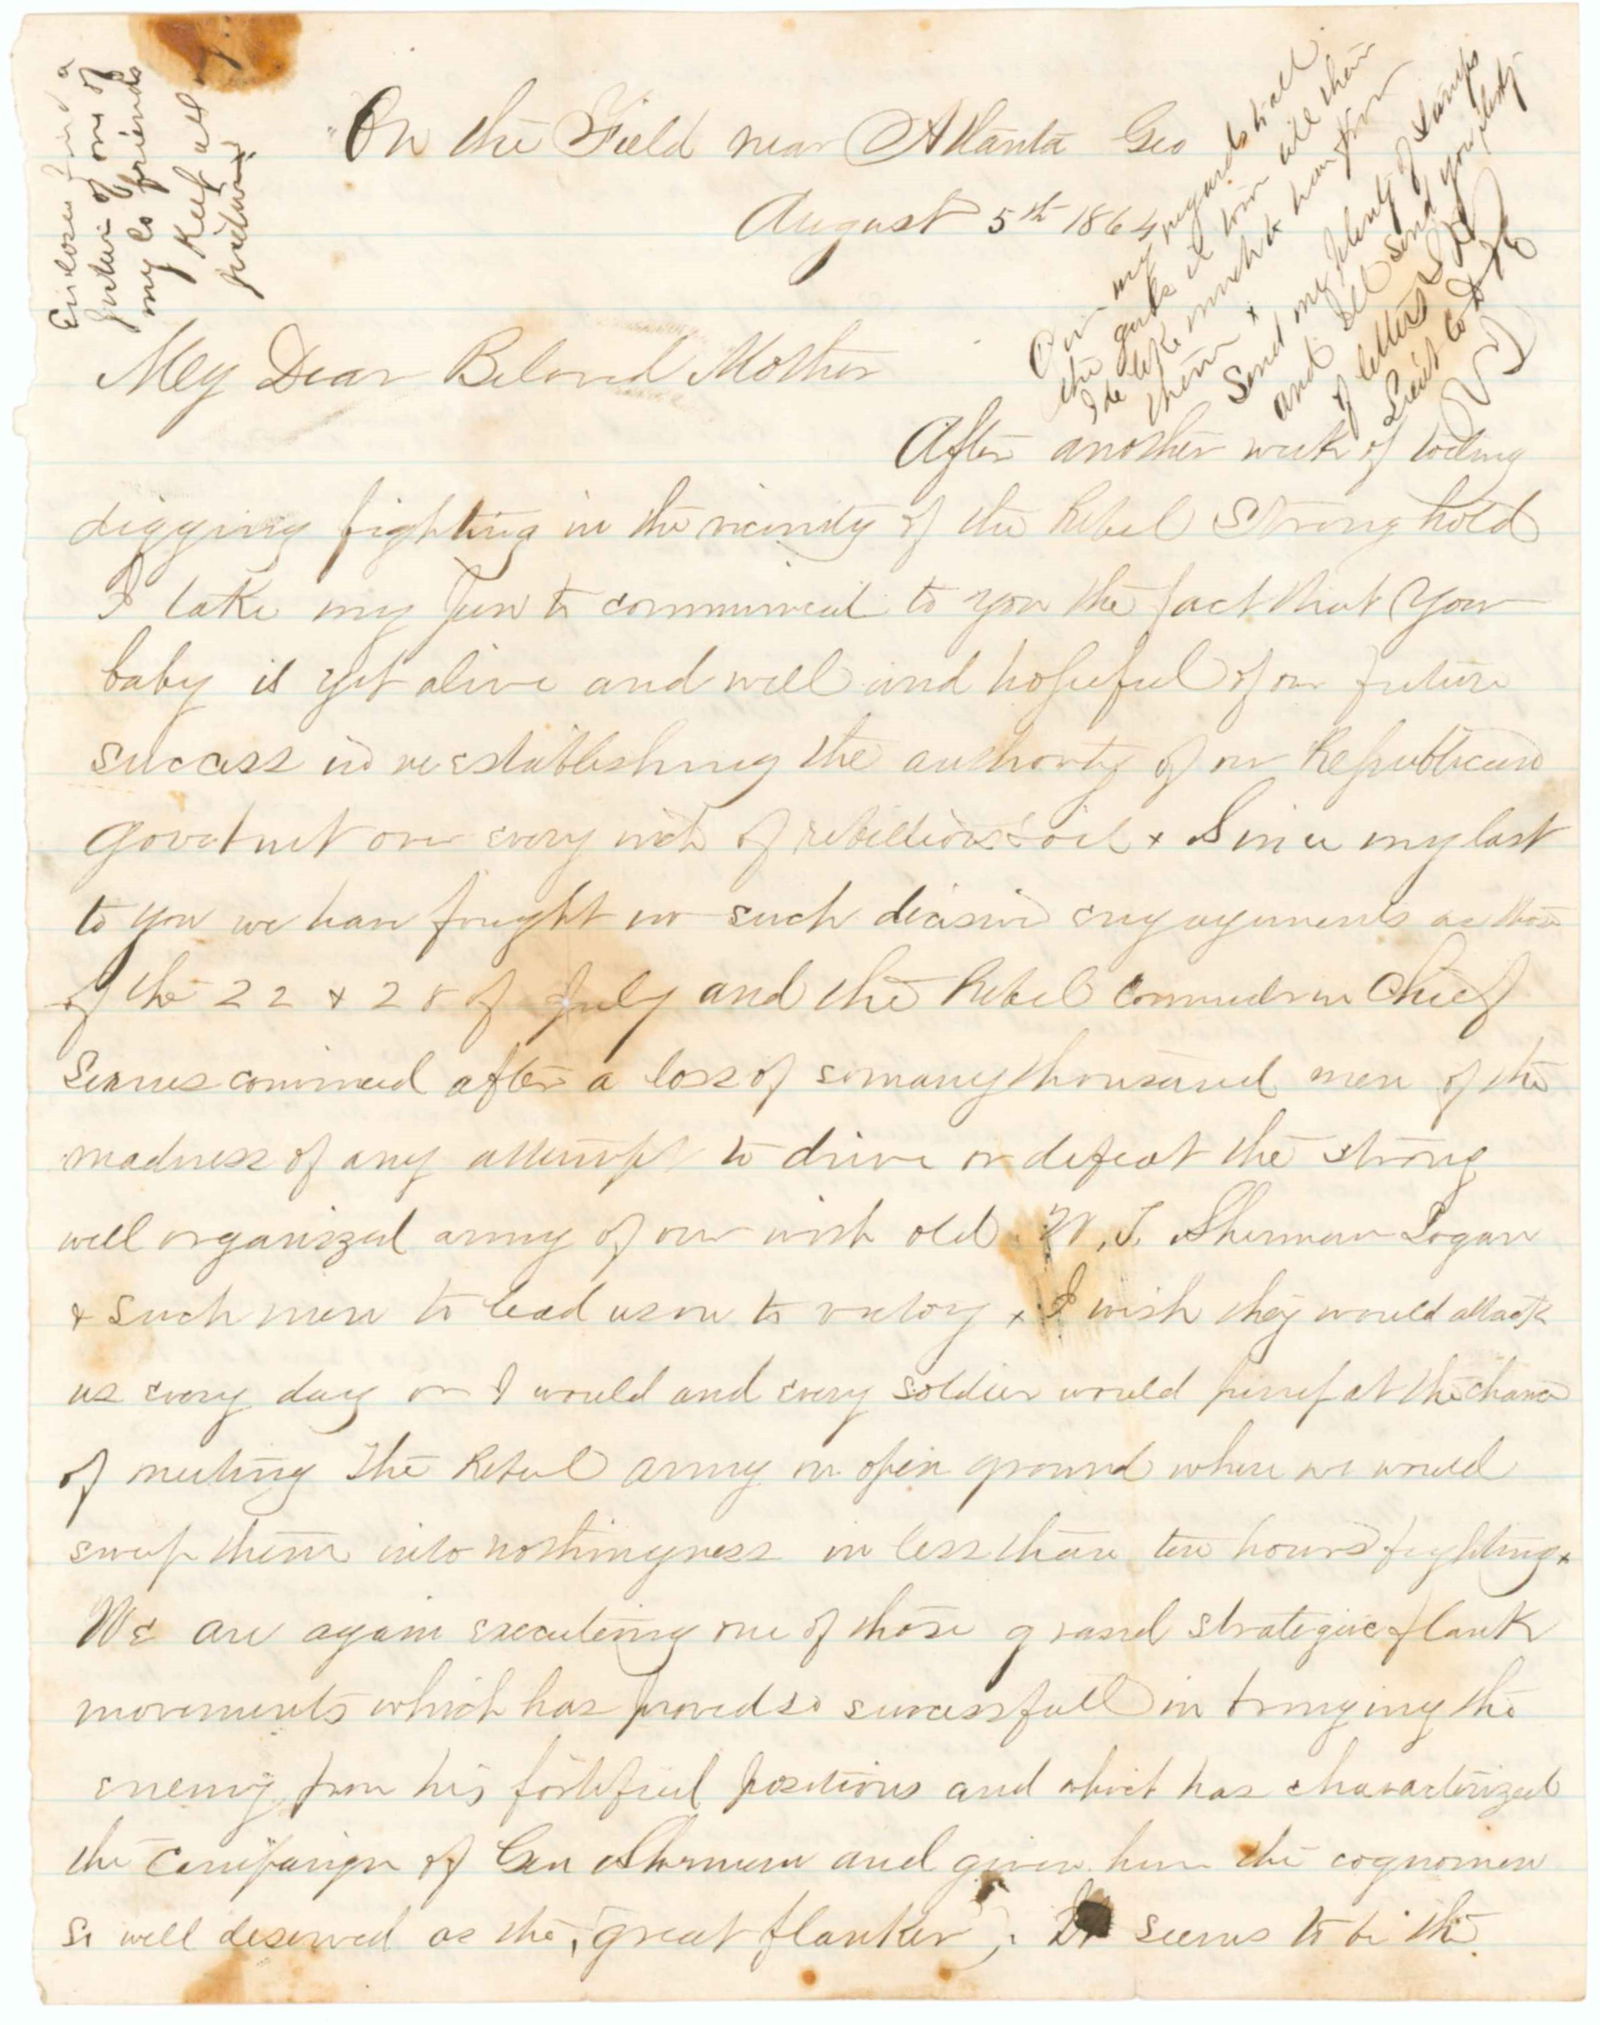 Enclosed find a
picture of one of
my Co friends
Keep all
pictures
On the Field near Atlanta Geo
August 5th 1864
Give my regards to all
the girls it town tell them
I de like much to hear from
them +
Send me plenty of stamps
and Ill send you plenty
of letters
Lieut Co
My Dear Beloved Mother
After another week of toiling
digging fighting in the vicinity of the Rebel Strong hold
I take my pen to communicat to you the fact that your
baby is yet alive and well and hopeful of our future
success in reestablishing the authority of our Republican
over every inch of rebellious soil + Since my last
to you we have fought no such dicisive engagements as those
of the 22 & 28 of July and the Rebel in Chief
Seems convinced after a loss of so many thousand men of the
madness of any attempt to drive or defeat the strong
well organized army of our with old W. T. Sherman Logan
& such men to lead us on to victory + I wish they would attack
us every day or I would and every soldier would at the chance
of meeting the Rebel army on open ground where we would
sweep them into nothingness in less than ten hours fighting +
We are again executing one of those grand strategic flank
movements which has proved so sucessfull in bringing the
enemy from his fortified positions and which has characterized
the Campaign of Gen Sherman and given him the cognomen
so well deserved as the "great flanker". It seems to be the